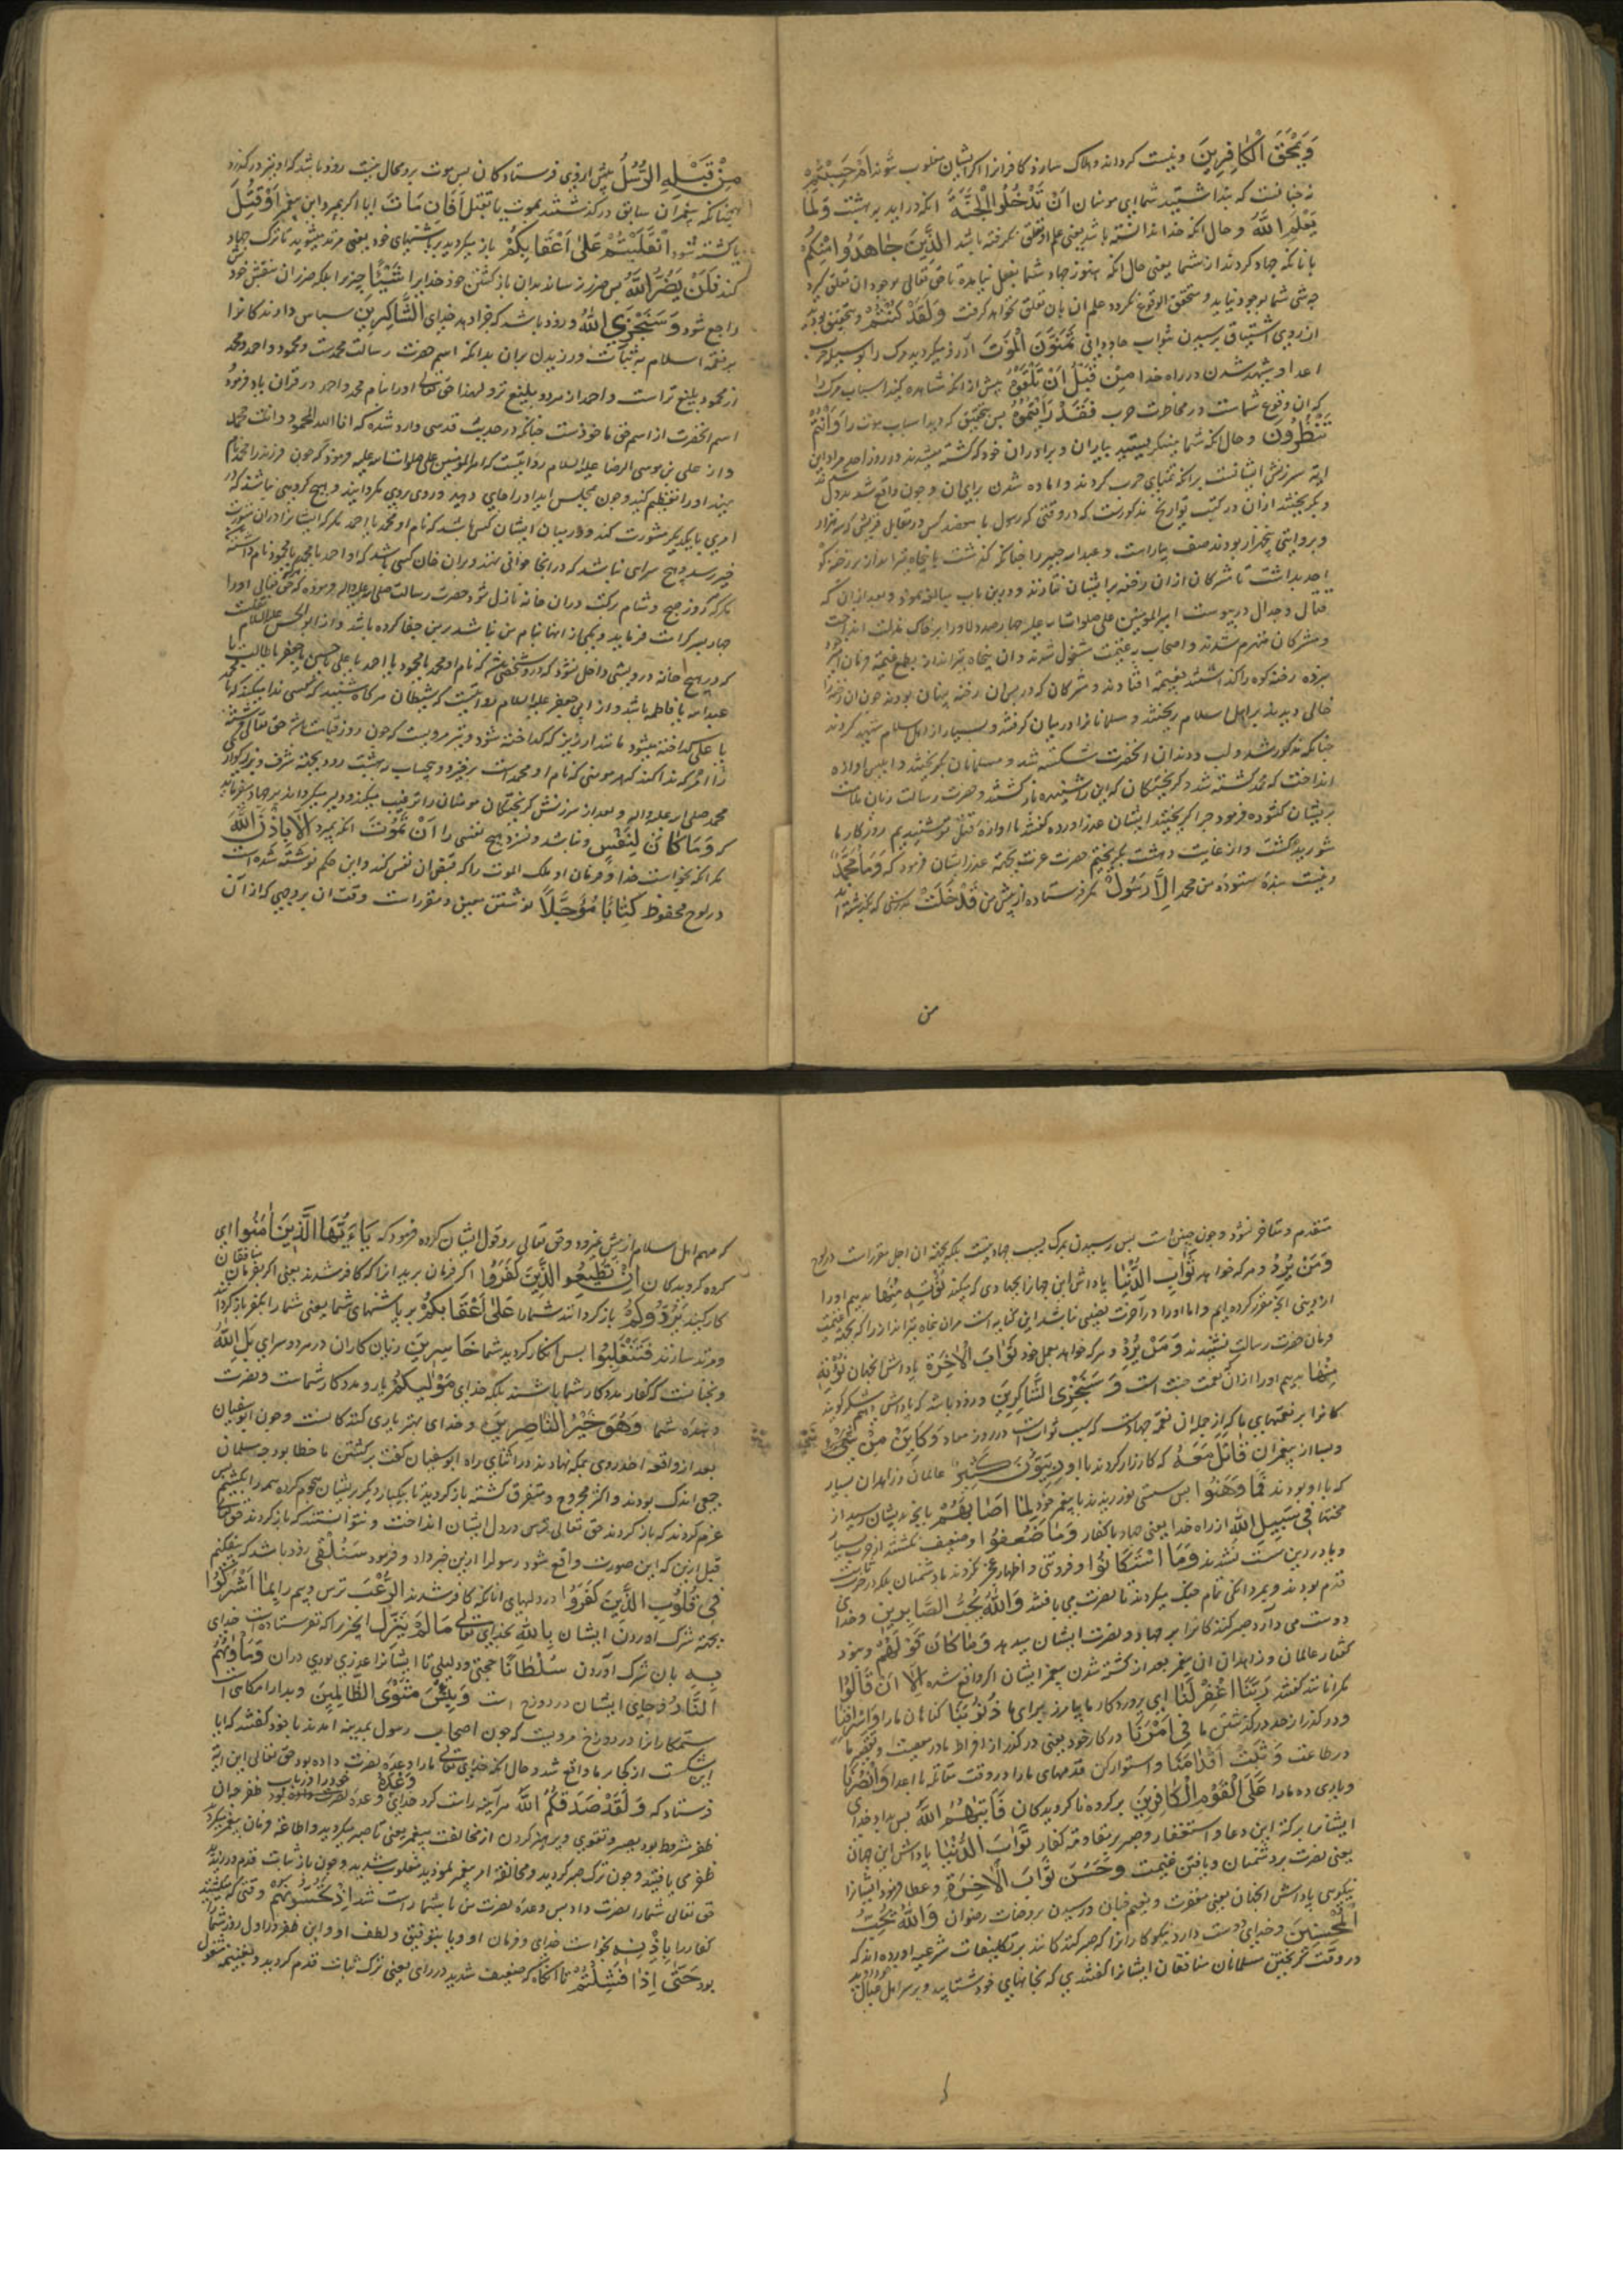 وَيَمْحَقَ الْكَافِرِينَ ونیست کرداند وهلاک سازد کافرانرا اکر ایشان مغلوب شوند اَمْ حَسِبْتُمْ
نه چنانست که پنداشتید شما ای مومنان اَنْ تَدْخُلُوا الْجَنَّةَ انکه دراید به بهشت وَلَمَّا
يَعْلَمِ اللّٰهُ وحال انکه خدا ندانسته باشد یعنی علم او تعلق نکرفته باشد الَّذِينَ جٰاهَدُوا مِنْكُمْ
بانانکه جهاد کردند از شما یعنی حال انکه هنوز جهاد شما بفعل نیامده تا حق تعالی بوجود ان تعلق کیرد
چه شی شما بوجود نیاید ومتحقق الوقوع نکردد علم ان بان تعلق نخواهد کرفت وَلَقَدْ كُنْتُمْ وبتحقیق بودید
از روی اشتیاق برسیدن ثواب جاودانی تَمَنَّوْنَ الْمَوْتَ ارزو میکردید مرک را بوسیله حرب
اعدا وشهید شدن در راه خدا مِنْ قَبْلِ اَنْ تَلْقَوْهُ پیش از انکه مشاهده کنید اسباب مرک را
که ان وقوع شماست در مخاطرات حرب فَقَدْ رَاَيْتُمُوهُ پس بتحقیق که دیدید اسباب موت را وَاَنْتُمْ
تَنْظُرُونَ وحال انکه شما مینکریستید بیاران وبرادران خود که کشته میشدند در روز احد مراد این
ایه سرزنش ایشانست برانکه تمنای حرب کردند واماده شدن برای ان وچون واقع شد بددل شدند
وبکریختند از ان در کتب تواریخ مذکورست که در وقتی که رسول با هفصد کس در مقابل قریش که سه هزار
وبروایتی پنجهزار بودند صف بیاراست وعبدالله جبیر را چنانکه گذشت با پنجاه تیرانداز بر رخنه کوه
احد بداشت تا مشرکان از ان رخنه بر ایشان نتازند ودرین باب مبالغه نمود وبعد از ان که
قتال وجدال درپیوست امیرالمومنین علی صلوات الله علیه چهارصد دلاور را بر خاک مذلت انداخت
ومشرکان منهزم شدند واصحاب به غنیمت مشغول شدند وان پنجاه تیرانداز بطمع غنیمة فرمان
نبرده رخنه کوه را گذاشتند بغنیمة افتادند ومشرکان که در پس ان رخنه پنهان بودند چون ان رخنه را
خالی دیدند بر اهل اسلام ریختند ومسلمانانرا در میان کرفتند وبسیار از اهل اسلام شهید کردند
چنانکه مذکور شد ولب ودندان انحضرت شکسته شد ومسلمانان بکریختند وابلیس اوازه
انداخت که محمد کشته شد وکریختکان که این را شنیدند بازکشتند وحضرت رسالت زبان ملامت
بریشان کشوده فرمود چرا کریختید ایشان عذر اورده کفتند ما اوازه قتل تو شنیدیم روزکار ما
شوریده گشت واز غایت دهشت بکریختیم حضرت عزت بجهة عذر ایشان فرمود که وَمَا مُحَمَّدٌ
ونیست بندهٔ ستوده من محمد اِلَّا رَسُولٌ مکر فرستاده از پیش من قَدْ خَلَتْ بدرستی که گذشته اند
من
مِنْ قَبْلِهِ الرُّسُلُ پیش از وی فرستادکان پس موت بر و محال نیست روا باشد که او نیز درگذرد
چنانکه پیغمران سابق درگذشتند بموت یا بقتل اَفَاِنْ مَاتَ ایا اکر بمیرد این پیغمبر اَوْ قُتِلَ
یا کشته شود اِنْقَلَبْتُمْ عَلٰى اَعْقَابِكُمْ باز میکردید بر پاشنهای خود یعنی مرتد میشوید تا ترک جهاد
کند فَلَنْ يَضُرَّ اللّٰهَ پس ضرر نرساند بدان بازگشتن خود خدایرا شَيْئًا چیزرا بلکه ضرر ان بنفس خود
راجع شود وَسَيَجْزِي اللّٰهُ وزود باشد که جزا دهد خدای الشَّاكِرِينَ سپاس دارندکانرا
بر نعمة اسلام به ثبات ورزیدن بران بدانکه اسم حضرت رسالت محمدست ومحمود واحمد ومحمد
از محمود بلیغ تر است واحمد از هر دو بلیغ تر ولهذا حق تعالی اورا بنام محمد واحمد در قران یاد فرمود
اسم انحضرت از اسم حق ماخوذست چنانکه در حدیث قدسی وارد شده که انا الله المحمود وانت محمد
واز علی بن موسی الرضا علیه السلام روایتست که امیرالمومنین علی صلوات الله علیه فرمود که چون فرزند را محمد نام
نهید اورا تعظیم کنید وچون بمجلس اید اورا جای دهید وروی بروی مکردانید وهیچ کروهی نباشند که در
امری با یکدیکر مشورت کنند ودر میان ایشان کسی باشد که نام او محمد یا احمد مکر که ایشانرا دران مشورت
خیر رسد وهیچ سرای نباشد که در انجا خوانی نهند وبران خان کسی باشد که او احمد یا محمد یا محمود نام داشته
مکر که هر روز صبح وشام برکت دران خانه نازل شود وحضرت رسالت صلی الله علیه واله فرموده که هر که حق تعالی اورا
چهار پسر کرامت فرماید ویکی از انها نبام من نباشد بر من جفا کرده باشد واز ابوالحسن علیه السلام نقلست
که در هیچ خانه درویشی داخل نشود که درو شخصی باشد که نام او محمد یا محمود یا احمد یا علی یا حسن یا جعفر یا طالب یا
عبدالله یا فاطمه باشد واز ابی جعفر علیه السلام روایتست که شیطان هر کاه شنید که کسی ندا میکند که یا محمد
یا علی کداخته میشود مانند ارزیز که کداخته شود ونیز مرویست که چون روز قیامت شود حق تعالی فرشته
را امر کند که ندا کند که هر مومنی که نام او محمد است برخیزد وبیحساب به بهشت رود بجهة شرف وبزرکواری
محمد صلی الله علیه واله وبعد از سرزنش کریختکان مومنان را ترغیب میکند ودلیر میکرداند بر جهاد میفرماید
که وَمَا كَانَ لِنَفْسٍ ونباشد ونسزد هیچ نفسی را اَنْ تَمُوتَ انکه بمیرد اِلَّا بِاِذْنِ اللّٰهِ
مکر انکه بخواست خدا وفرمان او ملک الموت را که قبض ان نفس کند واین حکم نوشته شده است
در لوح محفوظ كِتَابًا مُؤَجَّلًا نوشتنی معین ومقررات وقت ان بر وجهی که از ان
متقدم ومتاخر نشود وچون چنین است پس رسیدن بمرک بسبب جهاد نیست بلکه بجهة ان اجل مقررات در لوح
وَمَنْ يُرِدْ وهر که خواهد ثَوَابَ الدُّنْيَا پاداش این جهانرا بجهادی که میکند نُؤْتِهِ مِنْهَا بدهیم اورا
از دنیی انچه مقرر کرده ایم واما اورا در آخرت نصیبی نباشد این کنایه است مران پنجاه تیرانداز را که بجهة غنیمت
فرمان حضرت رسالت نشنیدند وَمَنْ يُرِدْ وهر که خواهد بعمل خود ثَوَابَ الْاٰخِرَةِ پاداش انجهان نُؤْتِهِ
مِنْهَا بدهیم اورا ازان نعمت جنت است وَسَنَجْزِى الشَّاكِرِينَ وزود باشد که پاداش دهیم شکر کویند
کانرا بر نعمتهای ما که از جمله ان نعمة جهادست که سبب ثوابست در روز معاد وَكَاَيِّنْ مِنْ نَبِيٍّ
وبسا از پیغمبران قَاتَلَ مَعَهُ که کارزار کردند با او رِبِّيُّونَ كَثِيرٌ عالمان وزاهدان بسیار
که با او بودند فَمَا وَهَنُوا پس سستی نورزیدند با پیغمبر خود لِمَا اَصَابَهُمْ بانچه بدیشان رسید از
محنتها فِي سَبِيلِ اللّٰهِ از راه خدا یعنی جهاد با کفار وَمَا ضَعُفُوا وضعیف نکشتند از حرب بسیار
ویا در دین سست نشدند وَمَا اسْتَكَانُوا وفروتنی واظهار عجز نکردند با دشمنان بلکه در حرب ثابت
قدم بودند وبمردانکی تمام جنک میکردند تا نصرت می یافتند وَاللّٰهُ يُحِبُّ الصَّابِرِينَ وخدای
دوست می دارد صبر کنندکانرا بر جهاد ونصرت ایشان میدهد وَمَا كَانَ قَوْلَهُمْ ونبود
گفتار عالمان وزاهدان ان پیغمبر بعد از کشته شدن پیغمبر ایشان اکر واقع شده اِلَّا اَنْ قَالُوا
مکر انانکه گفتند رَبَّنَا اغْفِرْ لَنَا ای پروردکار ما بیامرز برای ما ذُنُوبَنَا کناهان مارا وَاِسْرَافَنَا
ودر گذر از حد درگذشتن ما فِي اَمْرِنَا در کار خود یعنی در گذر از افراط ما در معصیت وتقصیر ما
در طاعت وَثَبِّتْ اَقْدَامَنَا واستوار کن قدمهای مارا در وقت مقاتله با اعدا وَانْصُرْنَا
ویاری ده مارا عَلَى الْقَوْمِ الْكَافِرِينَ بر کروه ناکرویدکان فَاٰتٰىهُمُ اللّٰهُ پس بداد خدای
ایشانرا ببرکة این دعا واستغفار وصبر بر مقاومة کفار ثَوَابَ الدُّنْيَا پاداش این جهان
یعنی نصرت بر دشمنان ویافتن غنیمت وَحُسْنَ ثَوَابِ الْاٰخِرَةِ وعطا فرمود ایشانرا
نیکویی پاداش انجهان یعنی مغفرت ونعیم جنان ورسیدن بروضات رضوان وَاللّٰهُ يُحِبُّ
الْمُحْسِنِينَ وخدای دوست دارد نیکوکارانرا که صبر کنندکانند بر تکلیفات شرعیه اورده اند که
در وقت کریختن مسلمانان منافقان ایشانرا گفتند که بخانهای خود شتابید وبر سر اهل وعیال خود روید
که مهم اهل اسلام از پیش نیرود وحق تعالی رد قول ایشان کرده فرمود که يَا اَيُّهَا الَّذِينَ اٰمَنُوا ای
کروه کرویدکان اِنْ تُطِيعُوا الَّذِينَ كَفَرُوا اکر فرمان برید انانکه کافر شدند یعنی اکر بفرمان منافقان
کار کنید يَرُدُّوكُمْ باز کردانند شمارا عَلٰى اَعْقَابِكُمْ بر پاشنهای شما یعنی شمارا بکفر باز کردانند
ومرتد سازند فَتَنْقَلِبُوا پس انکار کردید شما خَاسِرِينَ زیان کاران در هر دو سرای بَلِ اللّٰهُ
ونچنانست که کفار مددکار شما باشند بلکه خدای مَوْلٰيكُمْ یار ومددکار شماست ونصرت
دهندهٔ شما وَهُوَ خَيْرُ النَّاصِرِينَ وخدای بهتر یاری کنندکانست وچون ابوسفیان
بعد از واقعه احد روی بمکه نهادند در اثنای راه ابوسفیان گفت برگشتن ما خطا بود چه مسلمانان
جمعی اندک بودند واکثر مجروح ومتفرق گشته باز کردید تا بیکبار دیکر بریشان هجوم کرده همه را بکشیم پس
عزم کردند که باز کردند حق تعالی ترس در دل ایشان انداخت ونتوانستند که باز کردند حق تعالی
قبل ازین که این صورت واقع شود رسولرا ازین خبر داد وفرمود سَنُلْقِي زود باشد که بیفکنیم
فِي قُلُوبِ الَّذِينَ كَفَرُوا در دلهای انانکه کافر شدند الرُّعْبَ ترس وبیم را بِمَا اَشْرَكُوا
بجهة شرک اوردن ایشان بِاللّٰهِ بخدای تعالی مَا لَمْ يُنَزِّلْ انچیزرا که نفرستاده است خدای
بِهِ بان شرک آوردن سُلْطَانًا حجتی ودلیلی تا ایشانرا عذری بودی دران وَمَاْوٰيهُمُ
النَّارُ وجای ایشان در دوزخ است وَبِئْسَ مَثْوَى الظَّالِمِينَ وبد آرامکاهی است
ستمکارانرا در دوزخ مرویست که چون اصحاب رسول بمدینه امدند با خود گفتند که ایا
این شکست از کجا بر ما واقع شد وحال انکه خدای تعالی مارا وعده نصرت داده بود حق تعالی این ایة
فرستاد که وَلَقَدْ صَدَقَكُمُ اللّٰهُ هر آینه راست کرد خدای وَعْدَهُ وعده خودرا در باب ظفر چون
ظفر مشروط بود بصبر وتقوی وپرهیز کردن از مخالفت پیغمبر یعنی تا صبر میکردید واطاعة فرمان پیغمبر میکردید
ظفر می یافتید وچون ترک صبر کردید ومخالفة امر پیغمبر نمودید مغلوب شدید وچون باز ثابت قدم ورزیدید
حق تعالی شمارا نصرت داد پس وعده نصرت من با شما راست شد اِذْ تَحُسُّونَهُمْ وقتی که میکشتید
کفاررا بِاِذْنِهِ بخواست خدای وفرمان او ویا بتوفیق ولطف او واین ظفر در اول روز شمارا
بود حَتّٰى اِذَا فَشِلْتُمْ تا انکاه که ضعیف شدید در رای یعنی ترک ثبات قدم کردید وبغنیمة مشغول